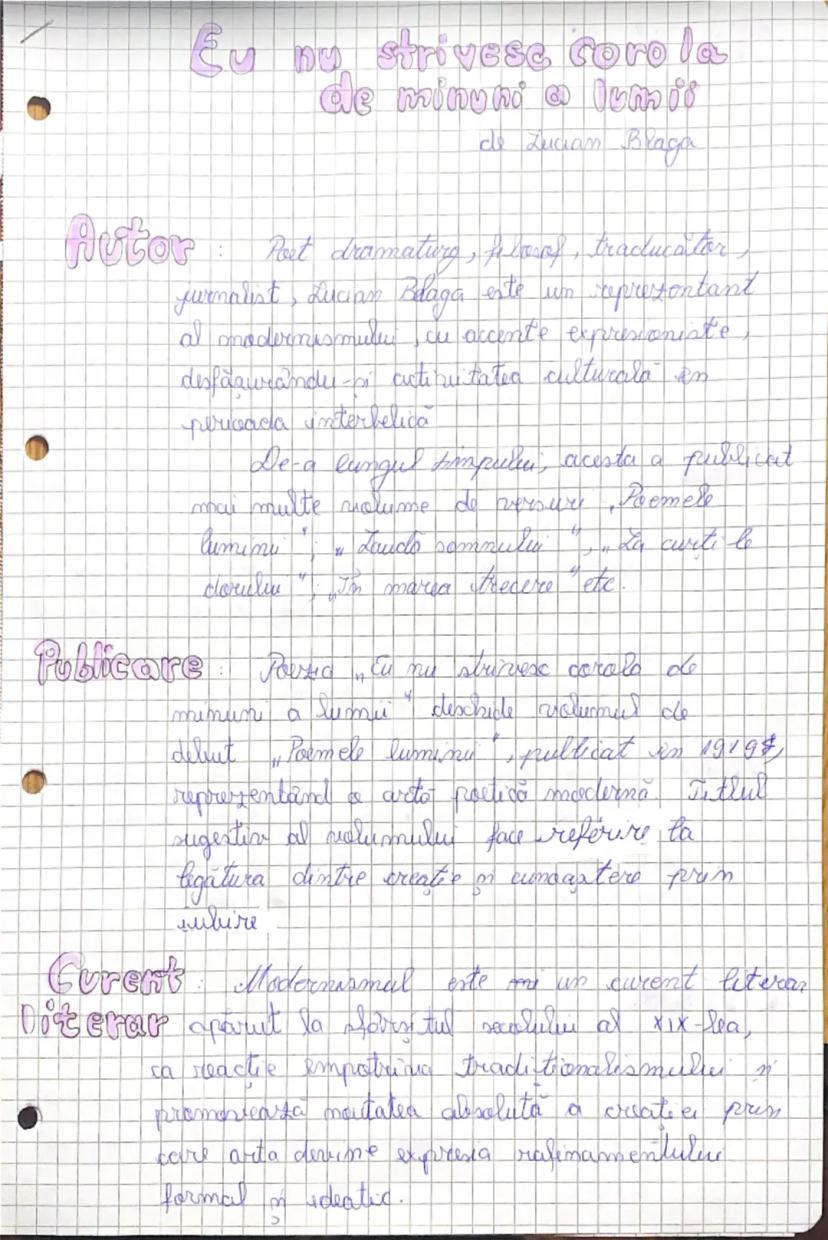 Eu nu strivesc corola
de minuni a lumii
de Lucian Blaga
Autor : Poet dramaturg, filosof, traducător,
jurnalist, Lucian Blaga este un reprezentant
al modernismului, cu accente expresioniste,
desfășurându-și activitatea culturală în
perioada interbelică
De-a lungul timpului, acesta a publicat
mai multe volume de versuri „Poemele
luminii"; „Lauda somnului", „La curțile
dorului"; „În marea trecere" etc.
Publicare : Poezia „Eu nu strivesc corola de
minuni a lumii" deschide volumul de
debut „Poemele luminii", publicat în 1919,
reprezentând o artă poetică modernă. Titlul
sugestiv al volumului face referire la
legătura dintre creație și cunoaștere prin
iubire
Curent : Modernismul este un curent literar
Literar apărut la sfârșitul secolului al XIX-lea,
ca reacție împotriva tradiționalismului și
promovează noutatea absolută a creației prin
care arta devine expresia rafinamentului
formal și ideatic.